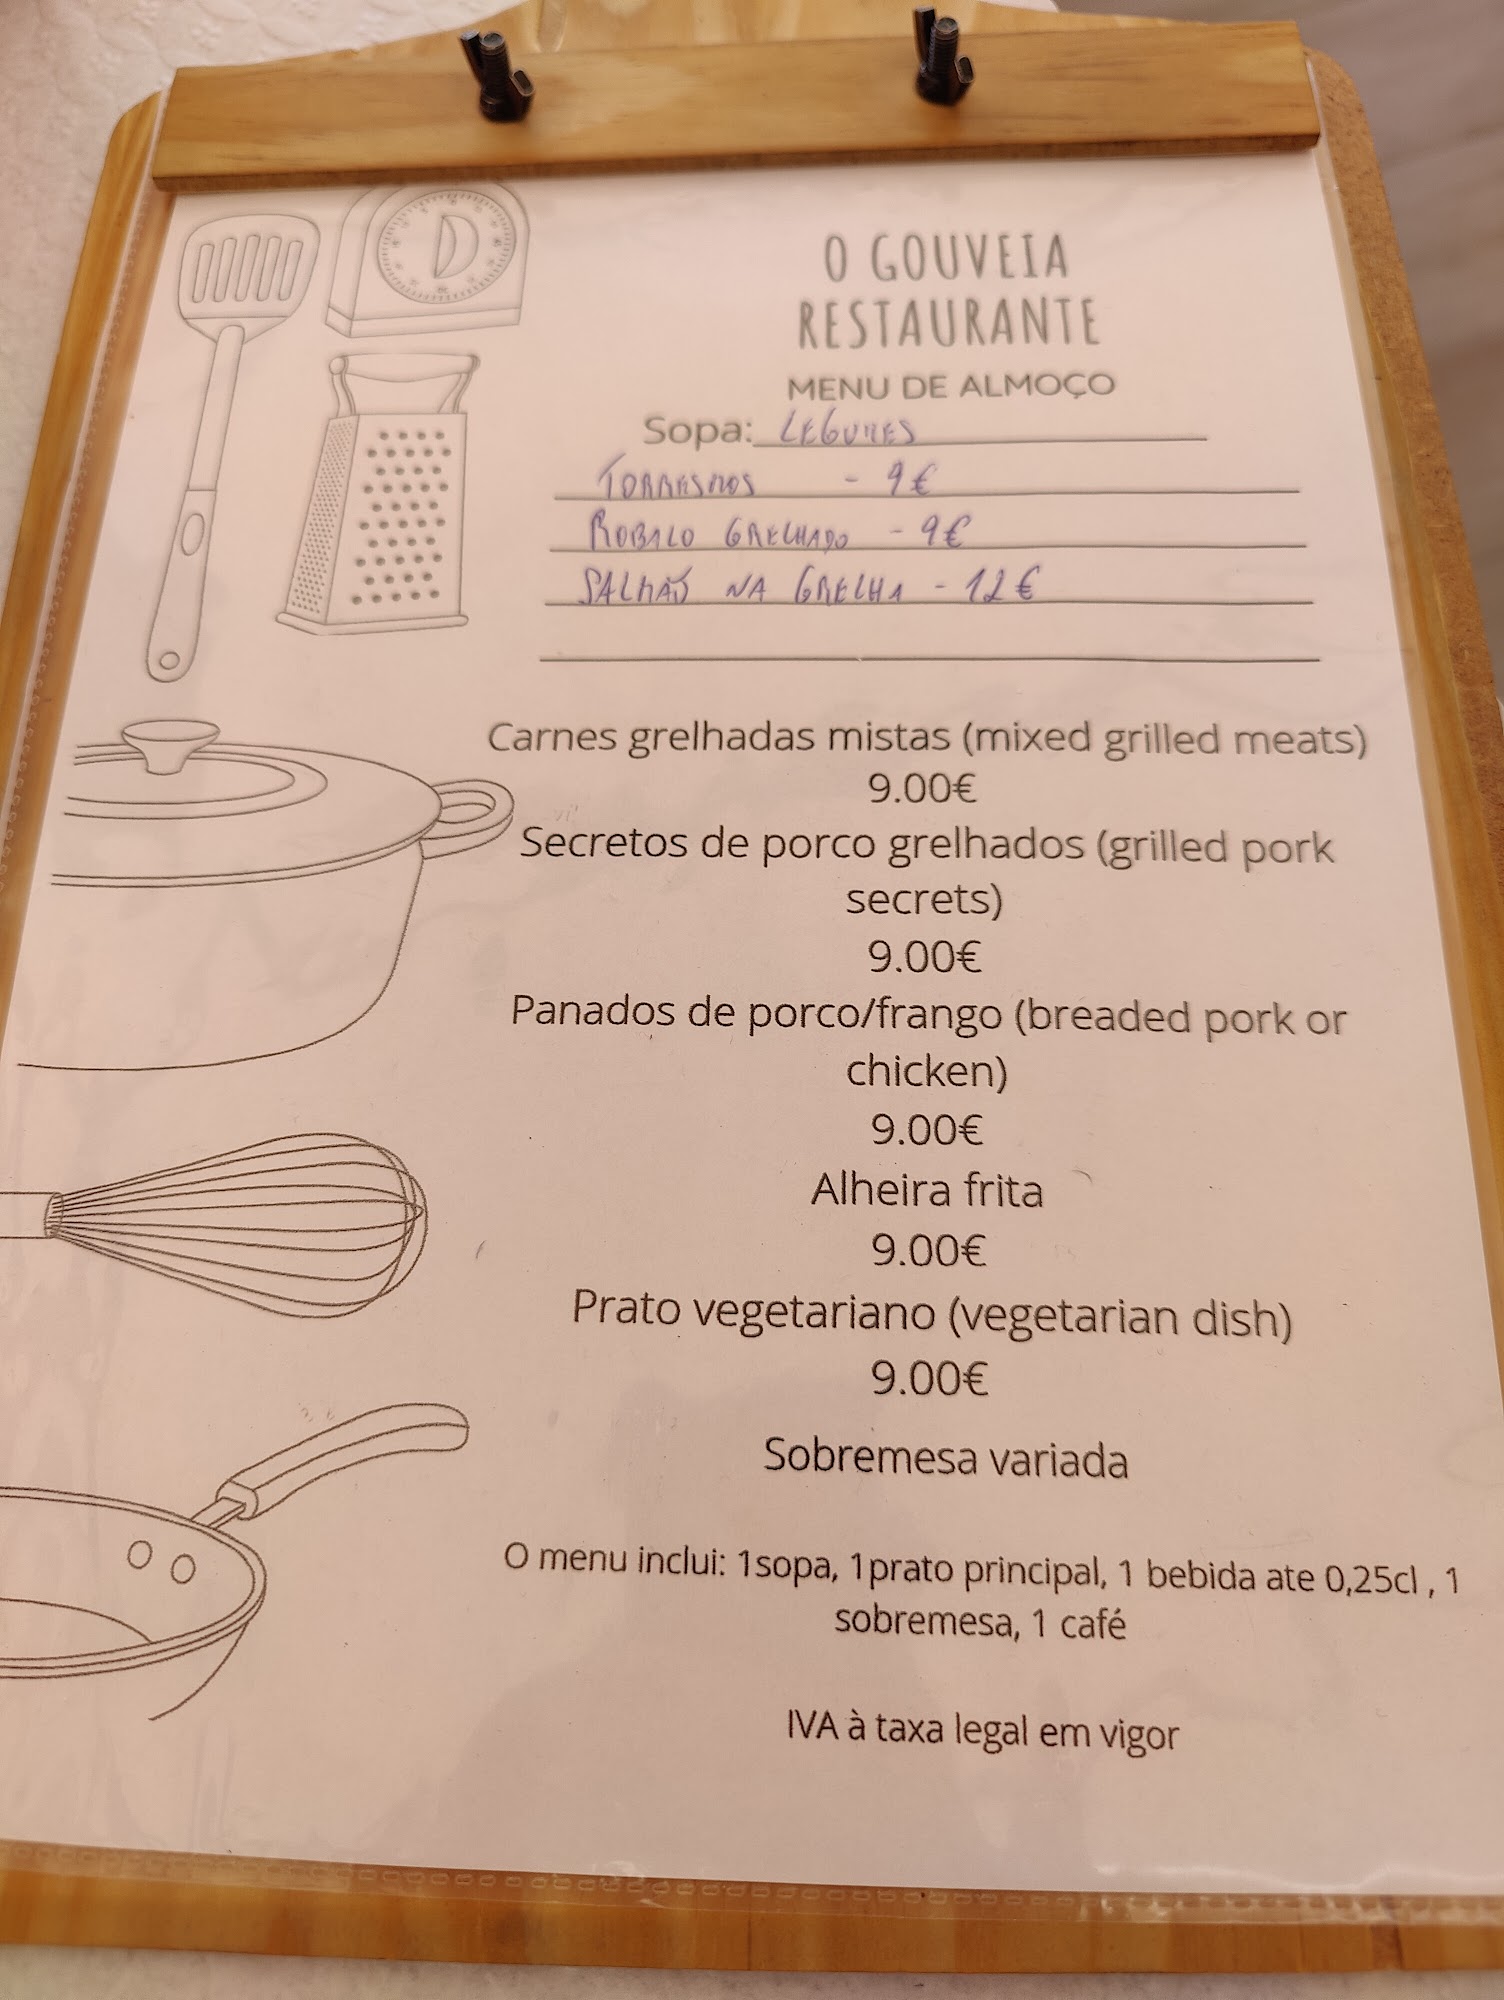 O GOUVEIA
RESTAURANTE
MENU DE ALMOÇO
Sopa: LEGUMES
TORRESMOS - 9€
ROBALO GRELHADO - 9€
SALMÃO NA GRELHA - 12€
Carnes grelhadas mistas (mixed grilled meats)
9.00€
Secretos de porco grelhados (grilled pork
secrets)
9.00€
Panados de porco/frango (breaded pork or
chicken)
9.00€
Alheira frita
9.00€
Prato vegetariano (vegetarian dish)
9.00€
Sobremesa variada
O menu inclui: 1sopa, 1prato principal, 1 bebida ate 0,25cl , 1
sobremesa, 1 café
IVA à taxa legal em vigor